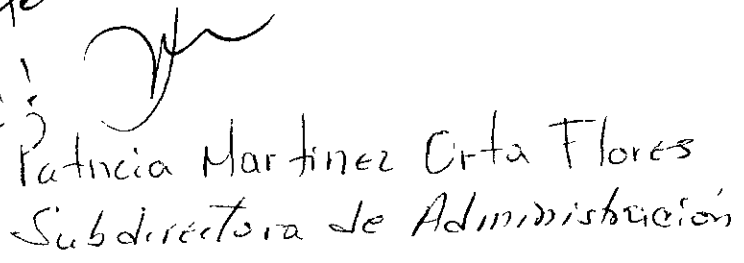 Patricia Martinez Orta Flores
Subdirectora de Administración